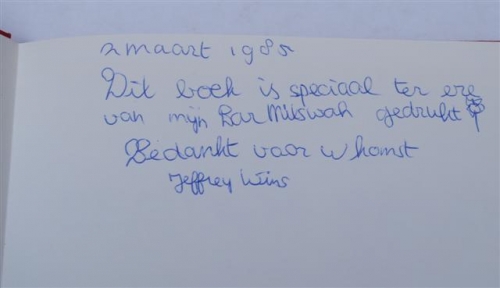 2 maart 1985
Dit boek is speciaal ter ere
van mijn Bar Mitswah gedrukt
Bedankt voor uw komst
Jeffrey